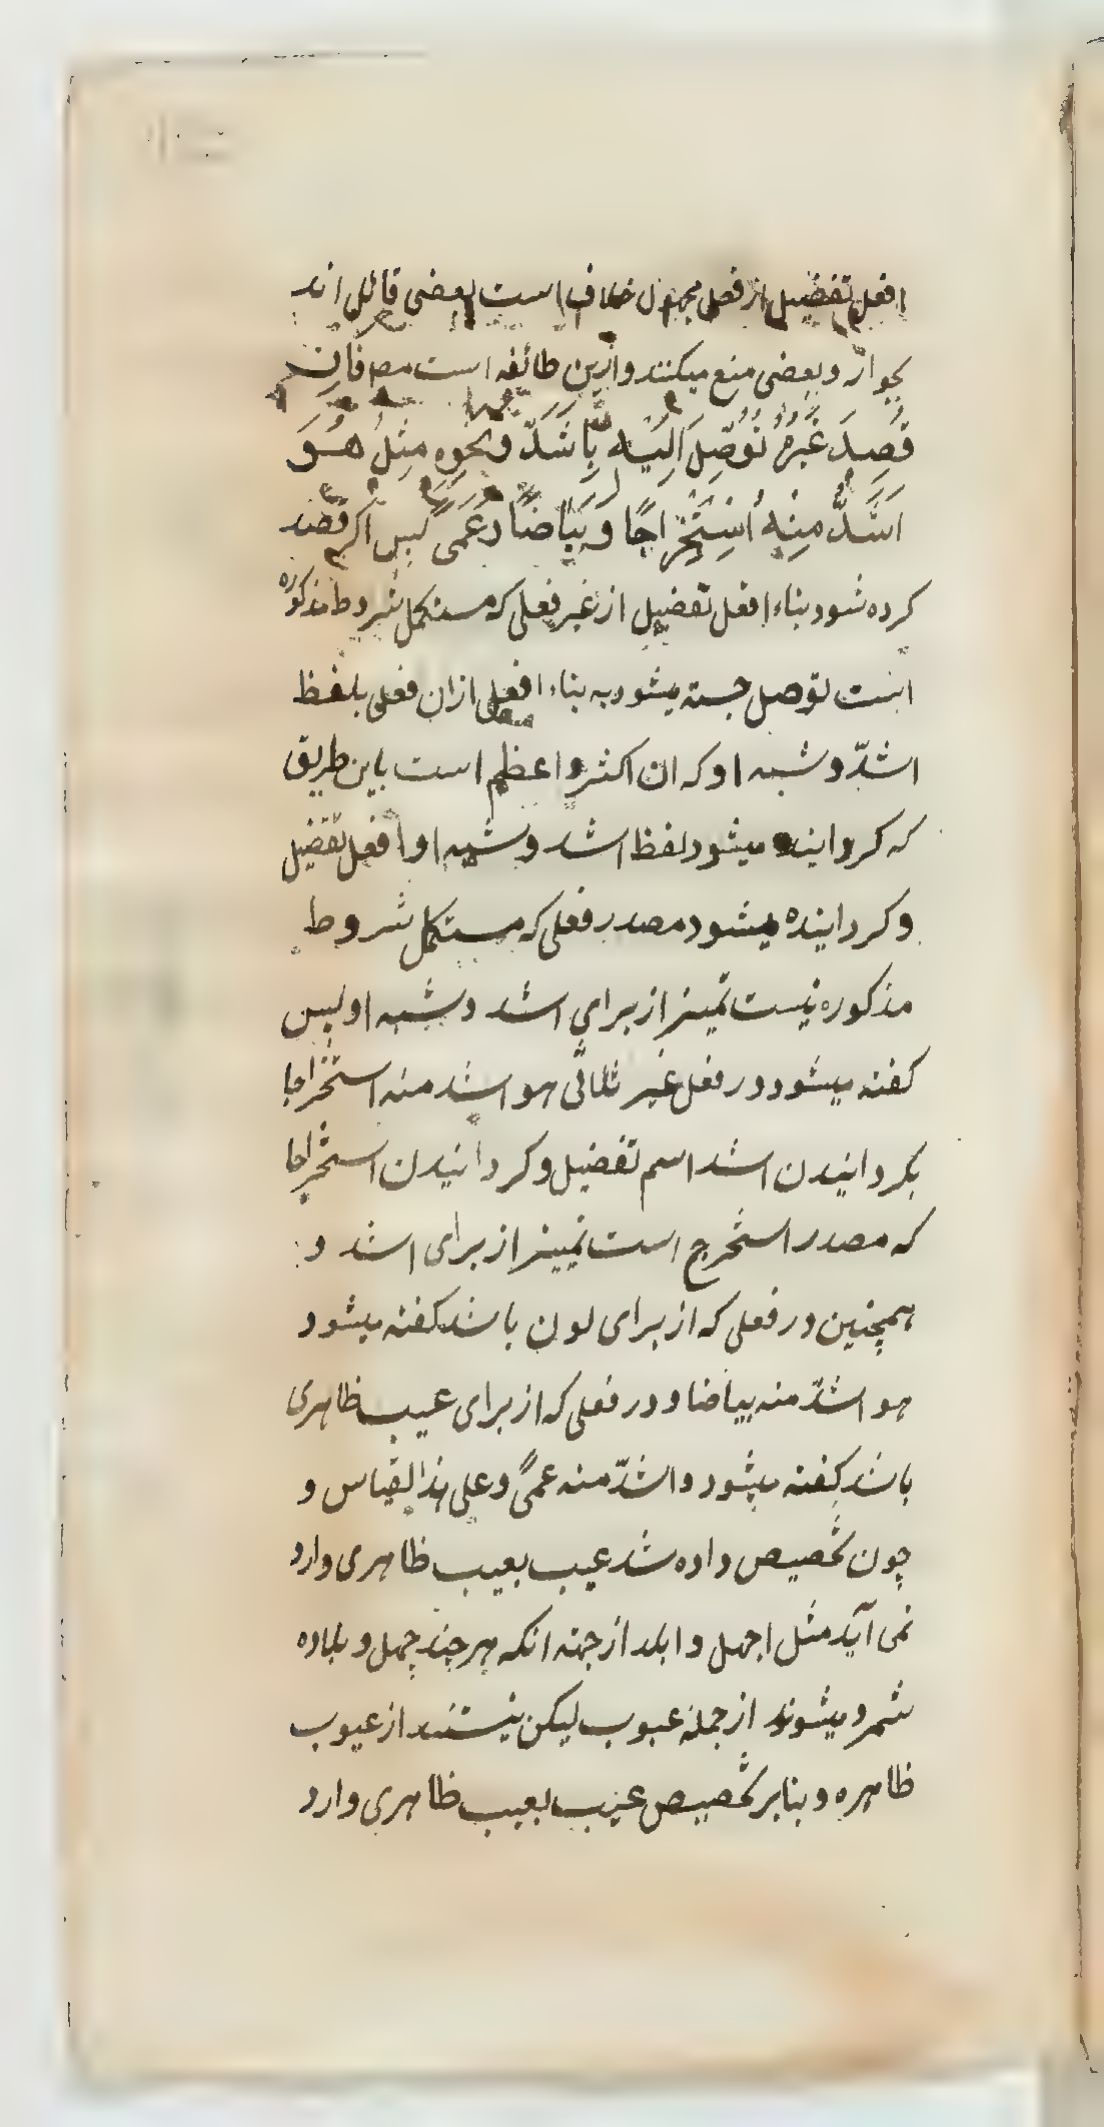 افعل تفضیل از فعل مجهول خلاف است بعضی قائل اند
بجواز و بعضی منع میکنند وازین طائفه است مصر فَاِن
قُصِدَ غَیْرُهُ تُوُصِّلَ اِلَیْهِ بِاَشَدَّ وَنَحْوِهِ مِثْلُ هُوَ
اَشَدُّ مِنْهُ اُسْتِخْرَاجًا وَ بَیَاضًا وَعَمًی پس اگر قصد
کرده شود بناء افعل تفضیل از غیر فعلی که مستکمل شروط مذکوره
است توصل جسته میشود به بناء افعل ازان فعل بلفظ
اشدّ و شبه او که ان اکثر و اعظم است باین طریق
که کردانیده میشود لفظ اشد و شبه او افعل تفضیل
و کردانیده میشود مصدر فعلی که مستکمل شروط
مذکوره نیست تمیز از برای اشد و شبه او پس
کفته میشود در فعل غیر ثلاثی هو اشد منه استخراجا
بکردانیدن اشد اسم تفضیل و کردانیدن استخراجا
که مصدر استخرج است تمییز از برای اشد و
همچنین در فعلی که از برای لون باشد کفته میشود
هو اشدّ منه بیاضا و در فعلی که از برای عیب ظاهری
باشد کفته میشود و اشدّ منه عمیً و علی هذا القیاس و
چون تخصیص داده شد عیب بعیب ظاهری وارد
نمی آید مثل اجهل و ابلد از جهة انکه هر چند جهل و بلاده
شمرد میشوند از جمله عیوب لیکن نیستند از عیوب
ظاهره و بنابر تخصیص عیب بعیب ظاهری وارد